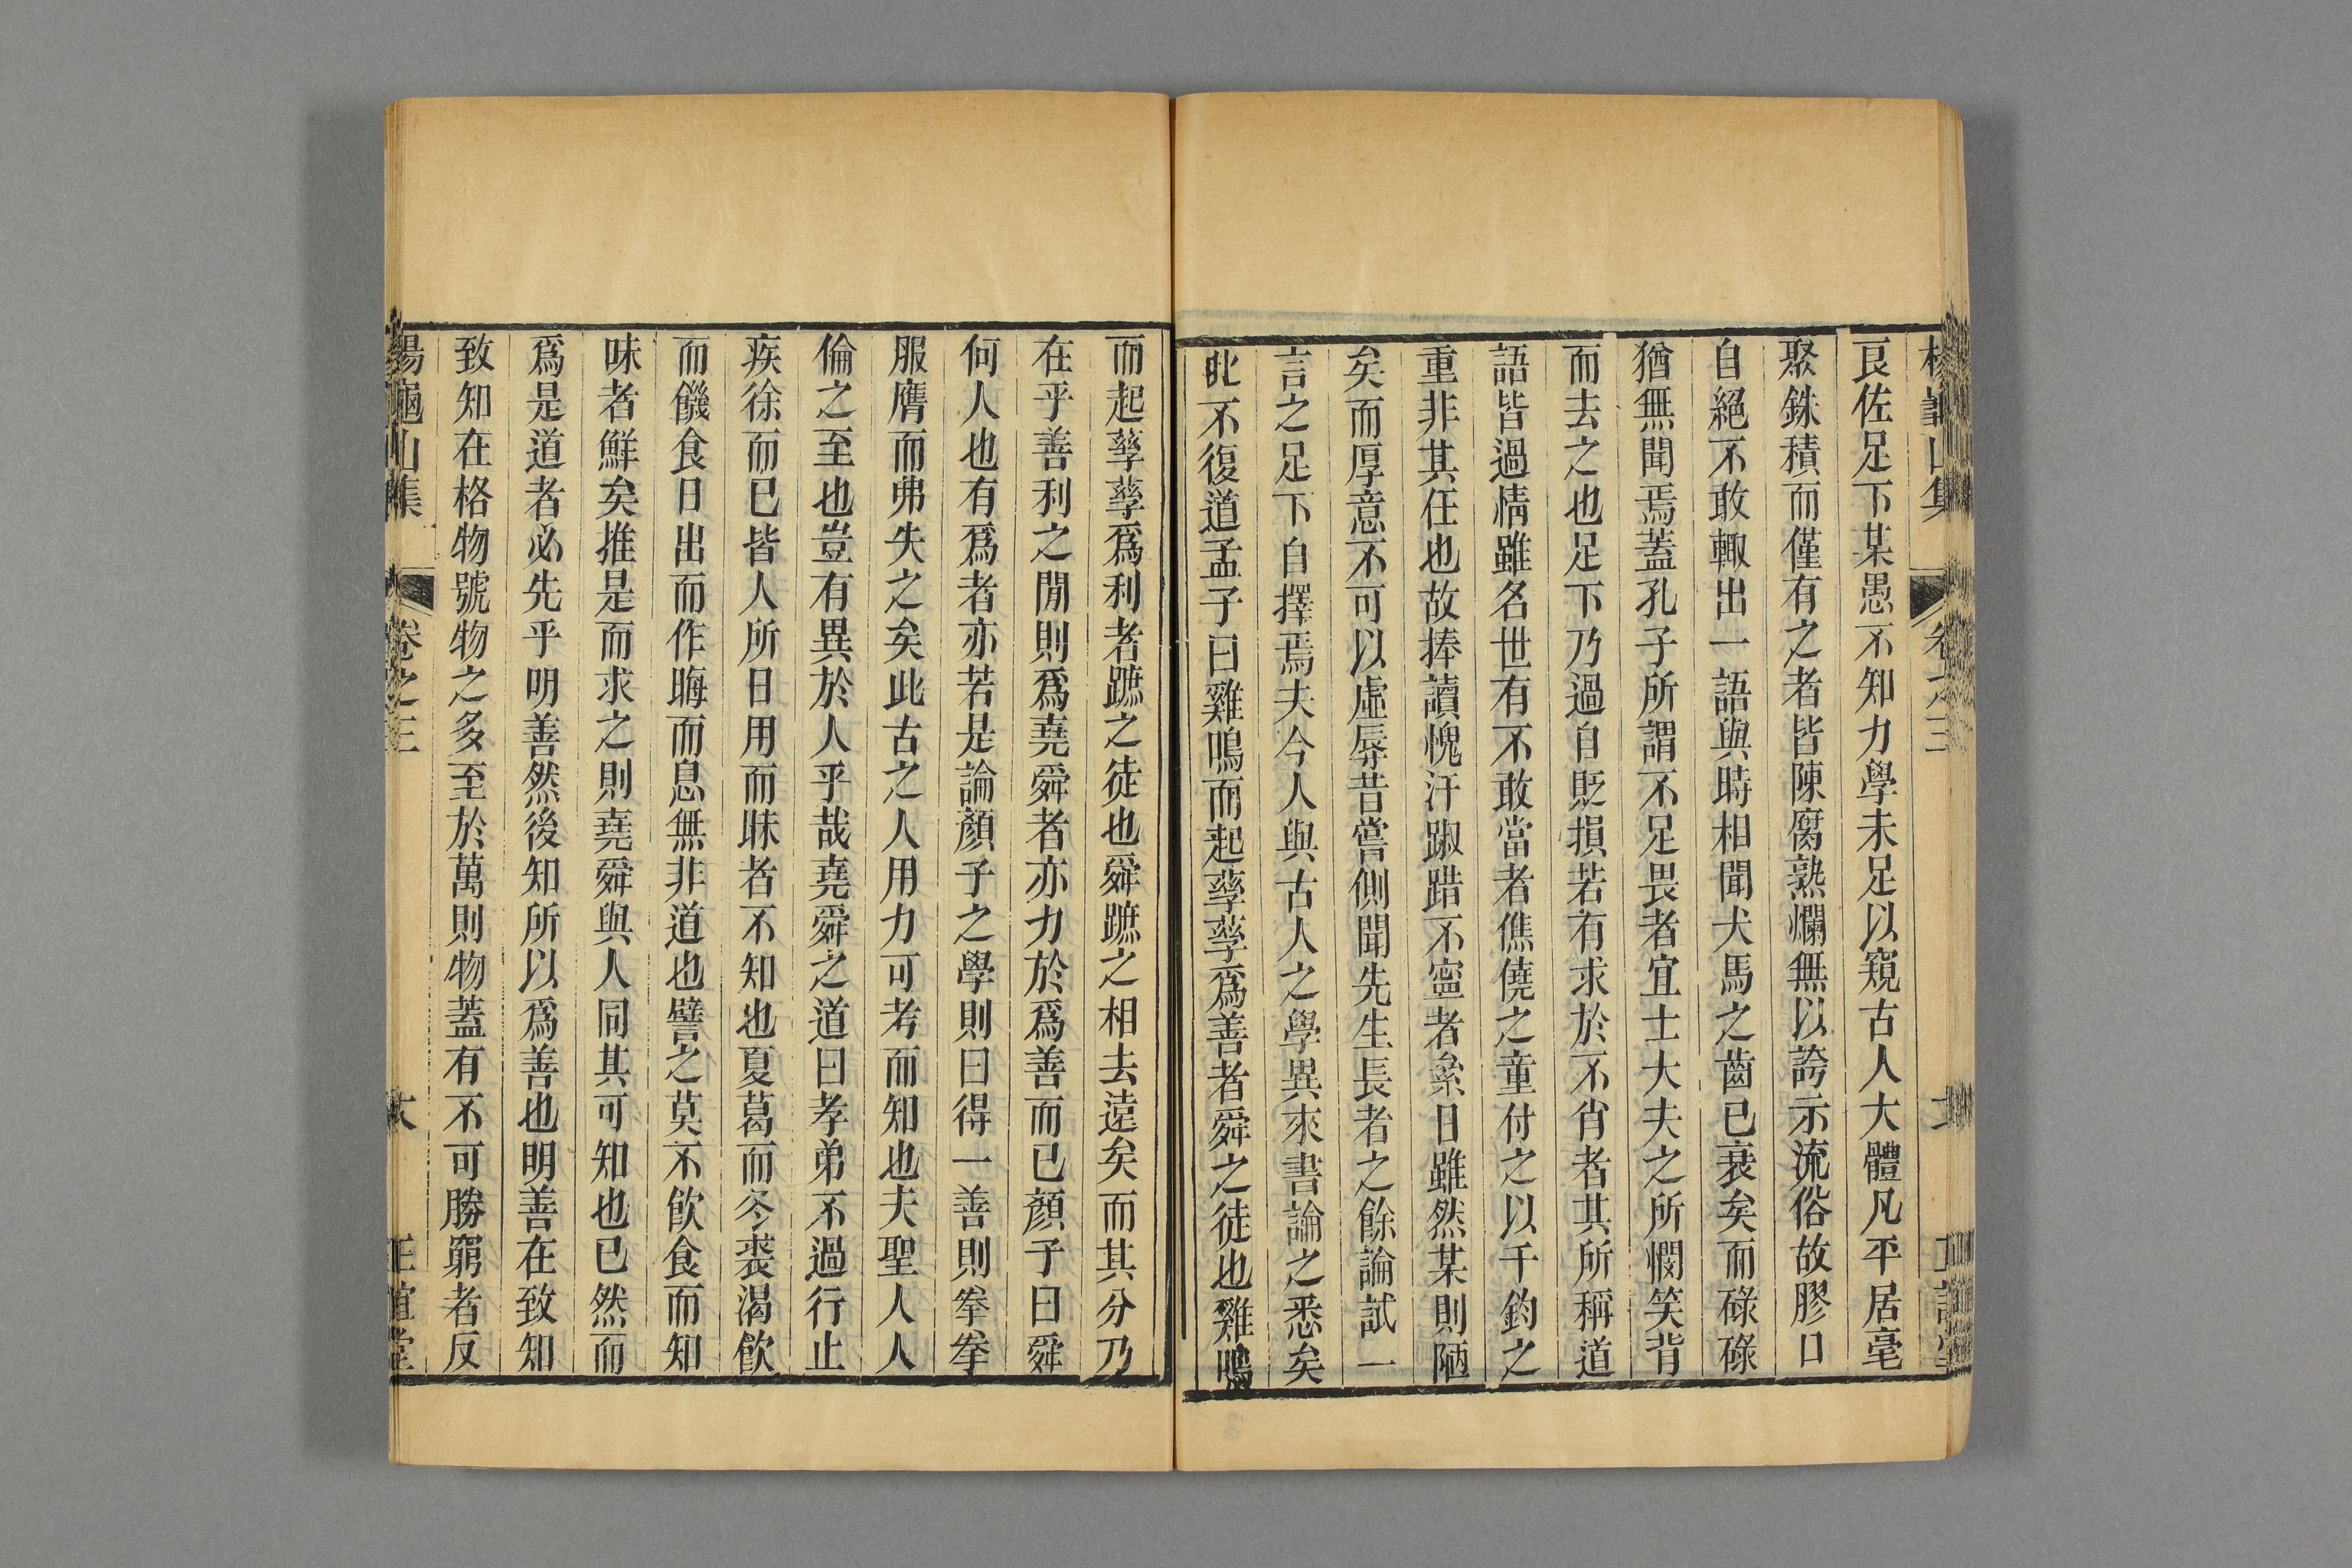 良佐足下某愚不知力學未足以窺古人大體凡平居毫
聚銖積而僅有之者皆陳腐熟爛無以誇示流俗故膠口
自絕不敢輙出一語與時相聞犬馬之齒已衰矣而碌碌
猶無聞焉蓋孔子所謂不足畏者宜士大夫之所憫笑背
而去之也足下乃過自貶損若有求於不肖者其所稱道
語皆過情雖名世有不敢當者僬僥之童付之以千鈞之
重非其任也故捧讀愧汗踧踖不寧者絫日雖然某則陋
矣而厚意不可以虛辱昔嘗側聞先生長者之餘論試一
言之足下自擇焉夫今人與古人之學異來書論之悉矣
此不復道孟子曰雞鳴而起孳孳爲善者舜之徒也雞鳴
而起孳孳爲利者蹠之徒也舜蹠之相去遠矣而其分乃
在乎善利之閒則爲堯舜者亦力於爲善而已顏子曰舜
何人也有爲者亦若是論顏子之學則曰得一善則拳拳
服膺而弗失之矣此古之人用力可考而知也夫聖人人
倫之至也豈有異於人乎哉堯舜之道曰孝弟不過行止
疾徐而已皆人所日用而昧者不知也夏葛而冬裘渴飮
而饑食日出而作晦而息無非道也譬之莫不飮食而知
味者鮮矣推是而求之則堯舜與人同其可知也已然而
爲是道者必先乎明善然後知所以爲善也明善在致知
致知在格物號物之多至於萬則物蓋有不可勝窮者反
楊龜山集 卷之三 六 正誼堂